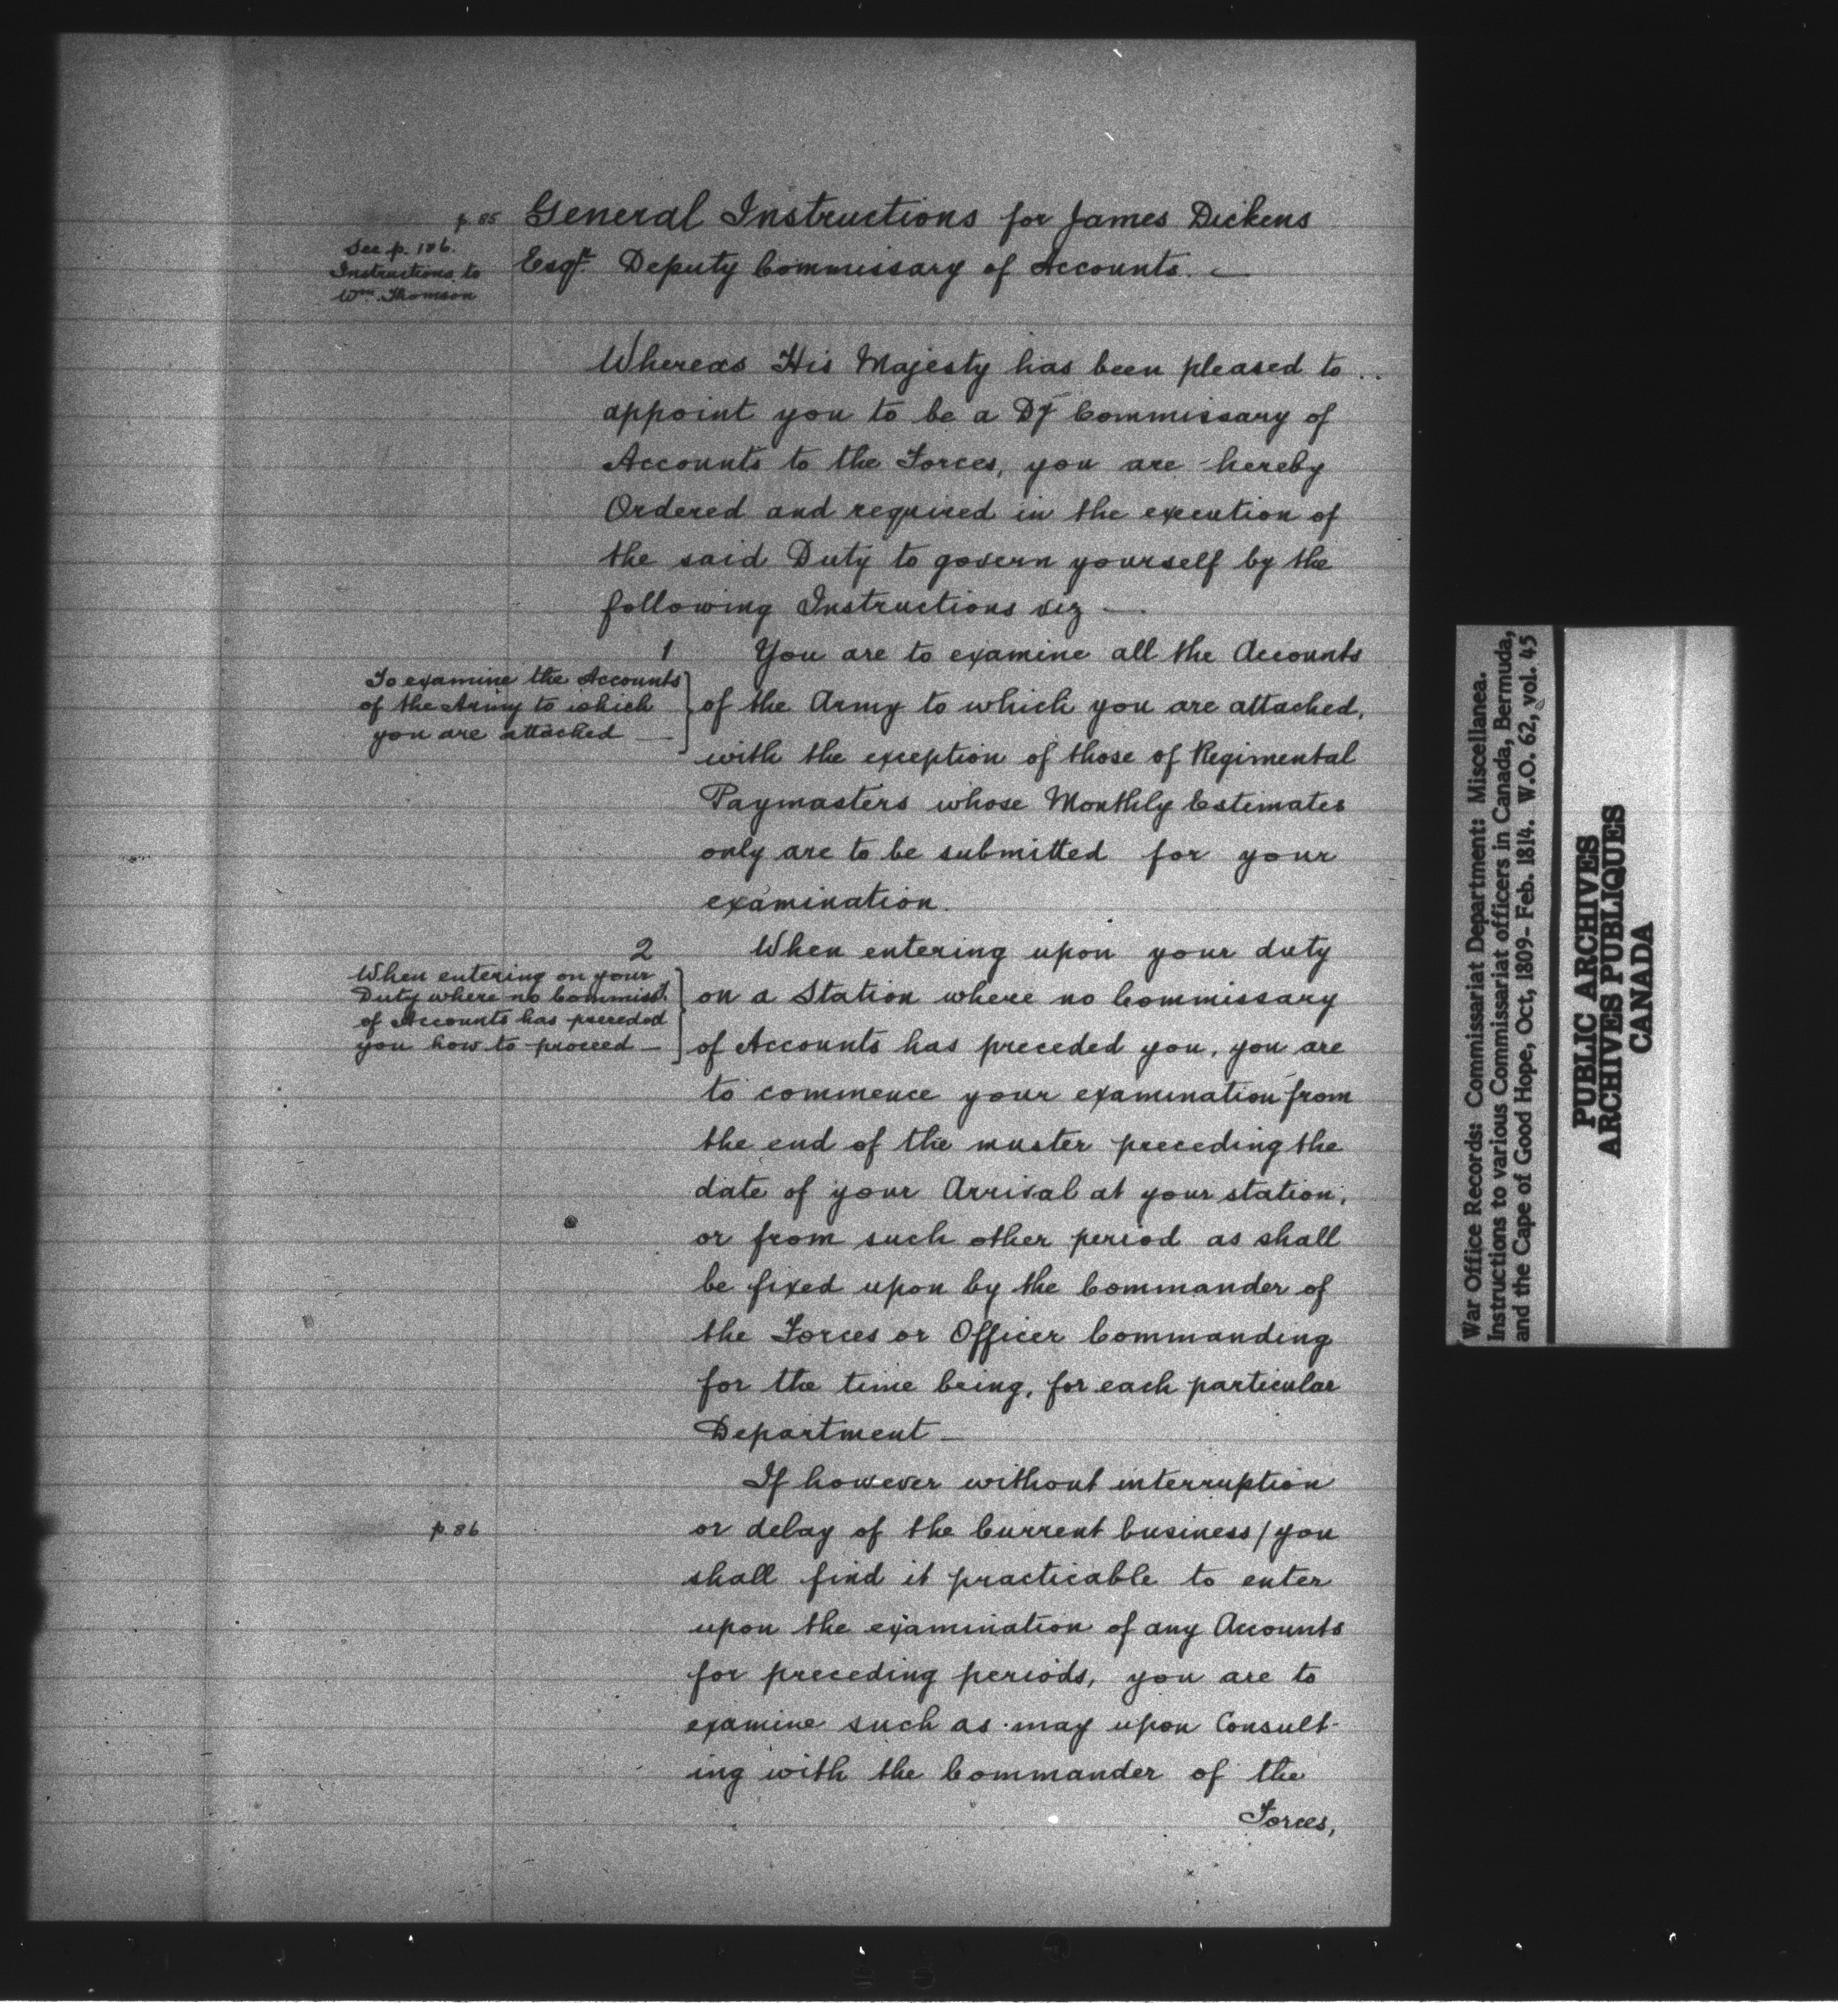 p. 85 General Instructions for James Dickens
See p. 186.
Instructions to
Wm. Thomson
Esqr. Deputy Commissary of Accounts. —
Whereas His Majesty has been pleased to ..
appoint you to be a Dy Commissary of
Accounts to the Forces, you are hereby
Ordered and required in the execution of
the said Duty to govern yourself by the
following Instructions viz —.
1 You are to examine all the Accounts
To examine the Accounts
of the Army to which
you are attached —
of the Army to which you are attached,
with the exception of those of Regimental
Paymasters whose Monthly Estimates
only are to be submitted for your
examination.
2 When entering upon your duty
When entering on your
Duty where no Commisst.
of Accounts has preceded
you how to proceed —
on a Station where no Commissary
of Accounts has preceded you, you are
to commence your examination from
the end of the muster preceding the
date of your Arrival at your station,
or from such other period as shall
be fixed upon by the Commander of
the Forces or Officer Commanding
for the time being, for each particular
Department —
If however without interruption
p. 86 or delay of the Current business / you
shall find it practicable to enter
upon the examination of any Accounts
for preceding periods, you are to
examine such as may upon Consult-
ing with the Commander of the
Forces,
War Office Records: Commissariat Department: Miscellanea.
Instructions to various Commissariat officers in Canada, Bermuda,
and the Cape of Good Hope, Oct, 1809- Feb. 1814. W.O. 62, vol. 45
PUBLIC ARCHIVES
ARCHIVES PUBLIQUES
CANADA